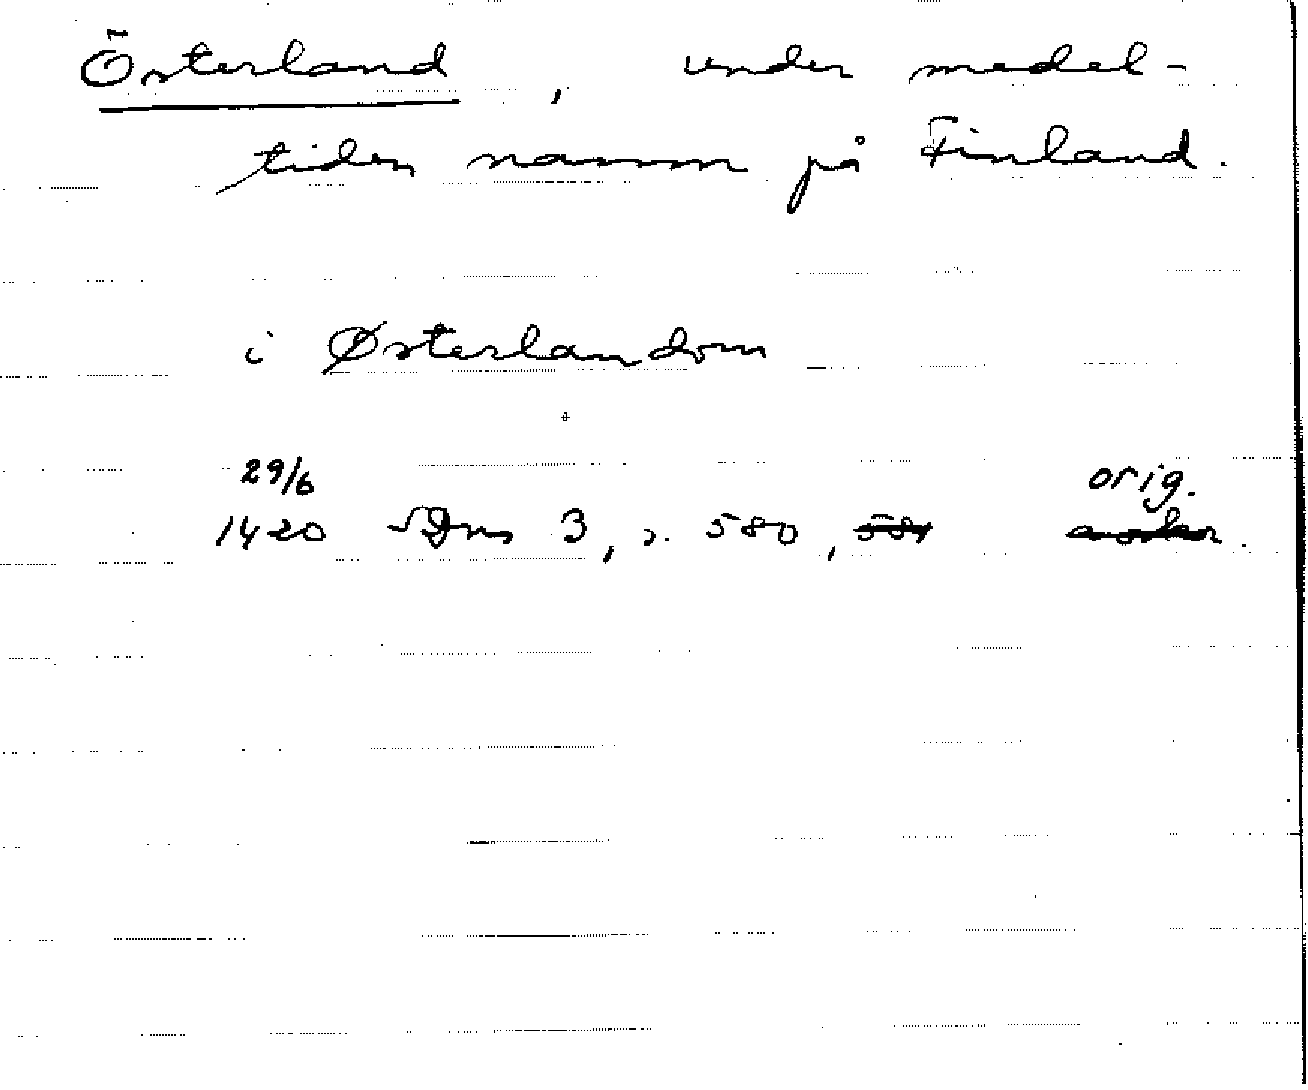 Österland, under medel-
tiden namn på Finland.
i Østerlandom
29/6 orig.
1420 SDns 3, s. 580,